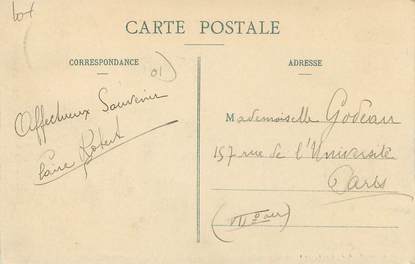 CARTE POSTALE
CORRESPONDANCE
ADRESSE
Affectueux Souvenir
Claire Robert
Mademoiselle Godeau
157 rue de l'Université
Paris
(VIIe arr)